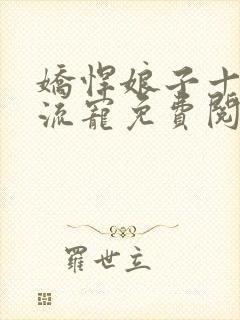 嬌悍娘子十
流寵免費閱
羅世立